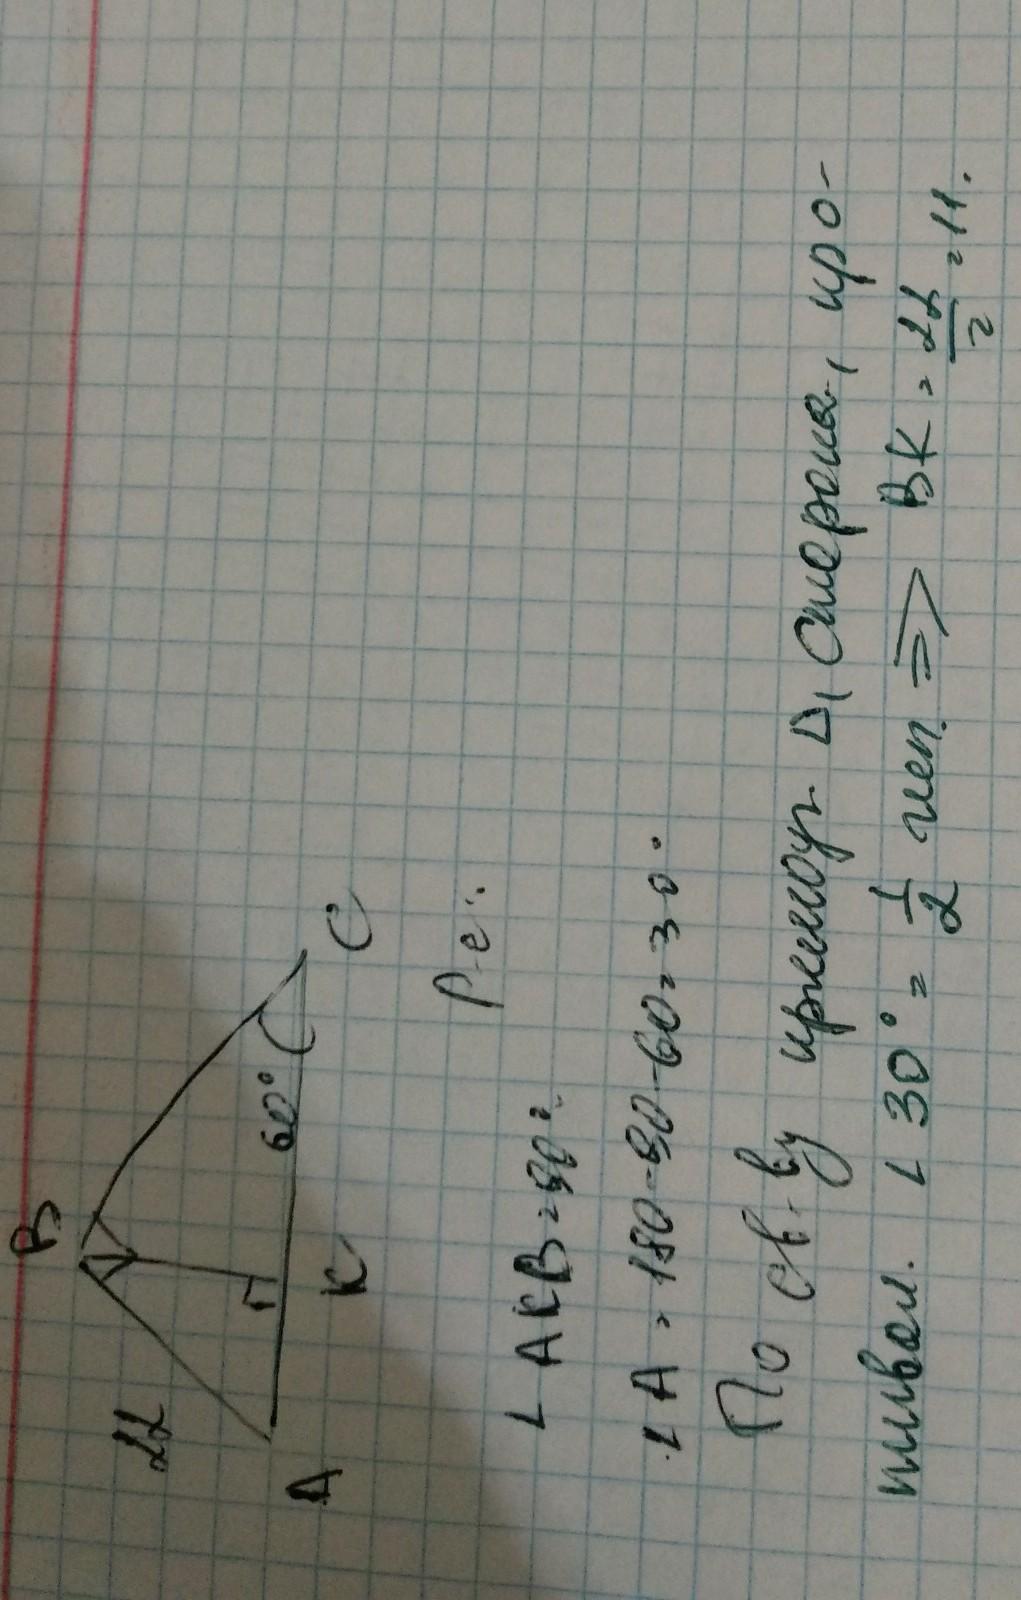 B
22
60°
A
K
C
Р-е:
∠ AKB = 90°.
∠ A = 180-90-60=30°
По св-ву прямоуг. Δ, сторона, про-
тивол. ∠ 30° = 1/2 гип. => BK = 22/2 = 11.